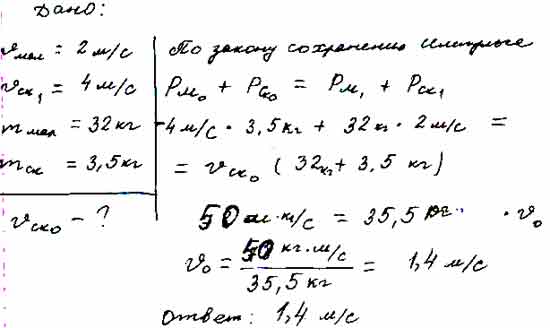 Дано:
v мал = 2 м/с
v ск₁ = 4 м/с
m мал = 32 кг
m ск = 3,5 кг
v ск₀ - ?
По закону сохранения импульса
Pм₀ + Pск₀ = Pм₁ + Pск₁
-4 м/с · 3,5 кг + 32 кг · 2 м/с =
= v ск₀ (32 кг + 3,5 кг)
50 м·кг/с = 35,5 кг · v₀
v₀ = 50 кг·м/с / 35,5 кг = 1,4 м/с
Ответ: 1,4 м/с